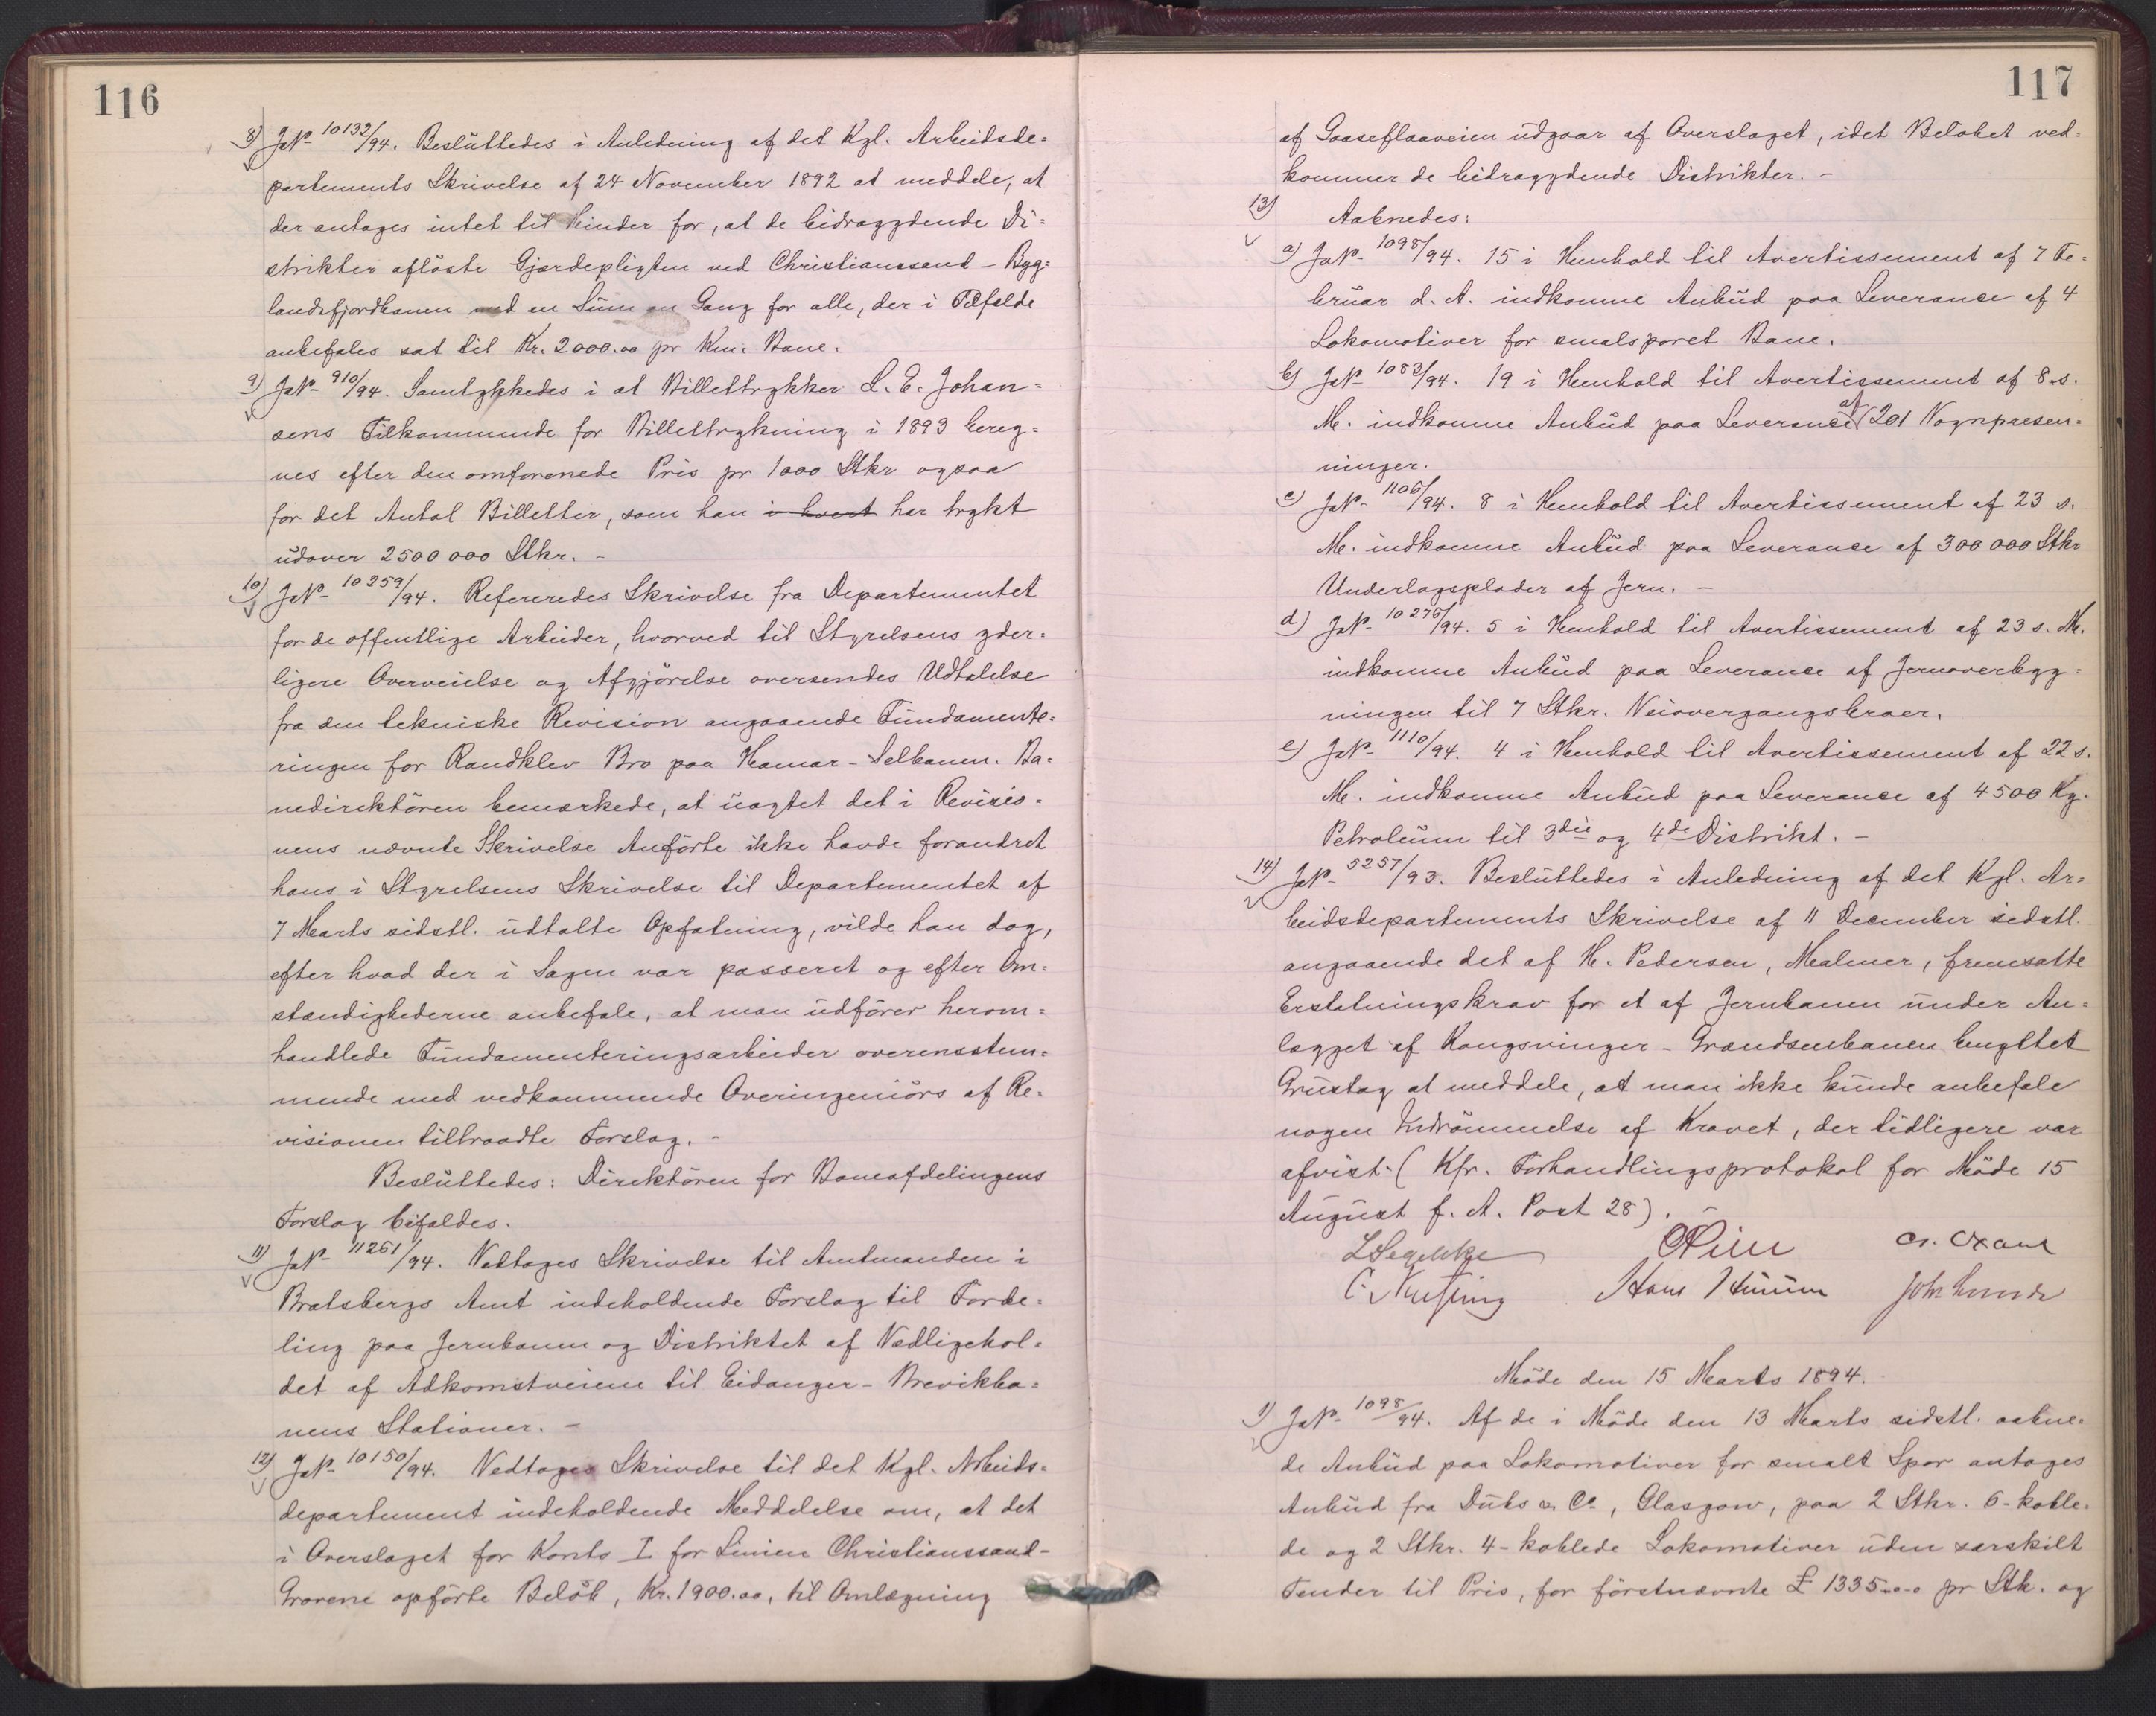 116
8) JNo 10132/94. Beslüttedes i Anledning af det Kgl. Arbeidsde=
partements Skrivelse af 24 November 1892 at meddele, at
der antages intet til Hinder for, at de bidragydende Di=
strikter aflöste Gjærdepligten ved Christianssand - Byg=
landsfjordbanen med en Süm en Gang for alle, der i Tilfælde
anbefales sat til Kr. 2000.00 pr Km. Bane.
9) JNo 910/94. Samtykkedes i at Billettrykker L. E. Johan=
sens Tilkommende for Billettrykning i 1893 bereg=
nes efter den omforenede Pris pr 1000 Stkr ogsaa
for det Antal Billetter, som han i hvert har trykt
üdover 2500000 Stkr. -
10) JNo 10259/94. Refereredes Skrivelse fra Departementet
for de offentlige Arbeider, hvorved til Styrelsens yder=
ligere Overveielse og Afgjörelse oversendes Udtalelse
fra den tekniske Revision angaaende Fündamente=
ringen for Randklev Bro paa Hamar - Selbanen. Ba=
nedirektören bemærkede, at üagtet det i Revisio=
nens nævnte Skrivelse Anförte ikke havde forandret
hans i Styrelsens Skrivelse til Departementet af
7 Marts sidstl. üdtalte Opfatning, vilde han dog,
efter hvad der i Sagen var passeret og efter Om=
stændighederne anbefale, at man üdförer herom=
handlede Fündamenteringsarbeider overensstem=
mende med vedkommende Overingeniörs af Re=
visionen tiltraadte Forslag. -
Beslüttedes: Direktören for Baneafdelingens
Forslag bifaldes.
11) JNo 11261/94. Vedtages Skrivelse til Amtmanden i
Bratsbergs Amt indeholdende Forslag til Forde=
ling paa Jernbanen og Distriktet af Vedligehol=
det af Adkomstveiene til Eidanger - Brevikba=
nens Stationer. -
12) JNo 10150/94. Vedtages Skrivelse til det Kgl. Arbeids=
departement indeholdende Meddelelse om, at det
i Overslaget for Konto I for Linien Christianssand -
Grovene opförte Belöb, Kr. 1900.00, til Omlægning
117
af Gaaseflaaveien üdgaar af Overslaget, idet Belöbet ved=
kommer de bidragydende Distrikter. -
13) Aabnedes:
a) JNo 1098/94. 15 i Henhold til Avertissement af 7 Fe=
brüar d. A. indkomne Anbüd paa Leverance af 4
Lokomotiver for smalsporet Bane.
b) JNo 1083/94. 19 i Henhold til Avertissement af 8 s.
M. indkomne Anbüd paa Leverance af 201 Vognpresen=
ninger.
c) JNo 1106/94. 8 i Henhold til Avertissement af 23 s.
M. indkomne Anbüd paa Leverance af 300 000 Stkr
Underlagsplader af Jern. -
d) JNo 10276/94. 5 i Henhold til Avertissement af 23 s. M.
indkomne Anbüd paa Leverance af Jernoverbyg=
ningen til 7 Stkr. Veiovergangsbroer.
e) JNo 1110/94. 4 i Henhold til Avertissement af 22 s.
M. indkomne Anbüd paa Leverance af 4500 Kg.
Petroleüm til 3die og 4de Distrikt. -
14) JNo 5257/93. Beslüttedes i Anledning af det Kgl. Ar=
beidsdepartements Skrivelse af 11 December sidstl.
angaaende det af H. Pedersen, Malmer, fremsatte
Erstatningskrav for et af Jernbanen ünder An=
lægget af Kongsvinger - Grændsenbanen benyttet
Grüstag at meddele, at man ikke kunde anbefale
nogen Indrömmelse af Kravet, der tidligere var
afvist. (Kfr. Forhandlingsprotokol for Möde 15
Aügüst f. A. Post 28). -
Möde den 15 Marts 1894.
1) JNo 1098/94. Af de i Möde den 13 Marts sidstl. aabne=
de Anbüd paa Lokomotiver for smalt Spor antages
Anbüd fra Dübs & Co, Glasgow, paa 2 Stkr. 6-koble=
de og 2 Stkr. 4-koblede Lokomotiver üden særskilt
Tender til Pris, for förstnævnte £ 1335-0-0 pr Stk. og